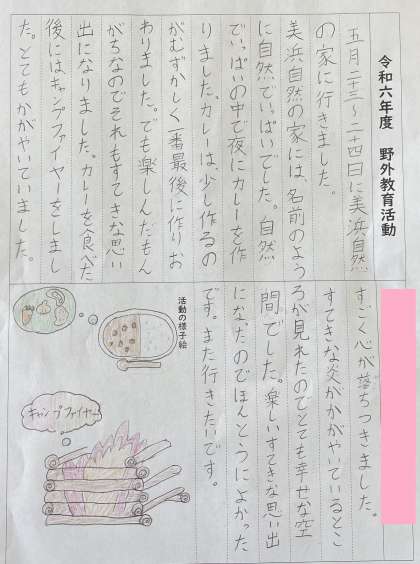 令和六年度　野外教育活動
五月二十三〜二十四日に美浜自然
の家に行きました。
美浜自然の家には、名前のよう
に自然でいっぱいでした。自然
でいっぱいの中で夜にカレーを作
りました。カレーは、少し作るの
がむずかしく一番最後に作りお
わりました。でも楽しんだもん
がちなのでそれもすてきな思い
出になりました。カレーを食べた
後にはキャンプファイヤーをしまし
た。とてもかがやいていました。
すごく心が落ちつきました。
すてきな炎がかがやいているとこ
ろが見れたのでとても幸せな空
間でした。楽しいすてきな思い出
になたのでほんとうによかった
です。また行きたいです。
活動の様子絵
キャンプファイヤー